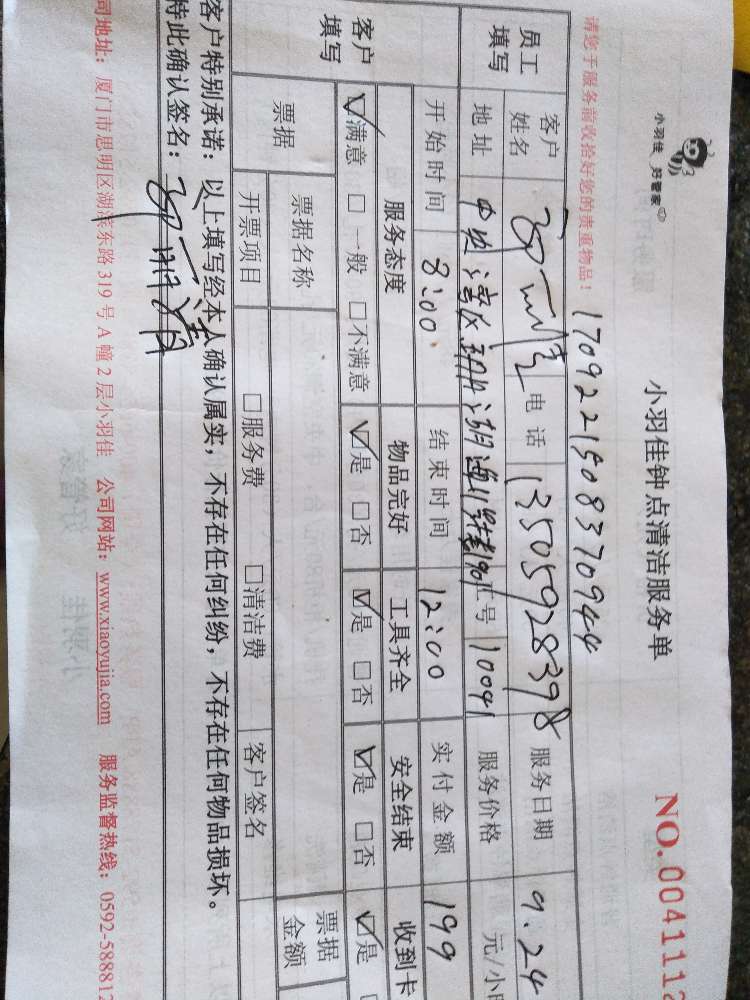 小羽佳 好管家
小羽佳钟点清洁服务单
NO. 0041112
请您于服务前收拾好您的贵重物品！
1709221508370944
员工填写 客户姓名 电话 13505928398 服务日期 9.24
地址 工号 10041 服务价格 元/小时
客户填写 开始时间 8:00 结束时间 12:00 实付金额 199
服务态度 物品完好 工具齐全 安全结束 收到卡
☑满意 □一般 □不满意 ☑是 □否 ☑是 □否 ☑是 □否 ☑是
票据 票据名称 票据金额
开票项目 □服务费 □清洁费 客户签名
客户特别承诺：以上填写经本人确认属实，不存在任何纠纷，不存在任何物品损坏。
特此确认签名：
司地址：厦门市思明区湖滨东路319号A幢2层小羽佳 公司网站：www.xiaoyujia.com 服务监督热线：0592-588812